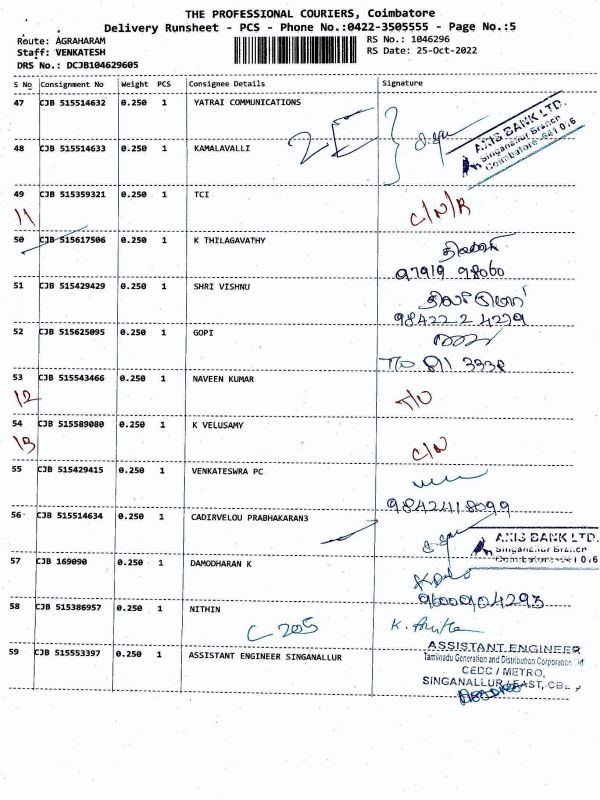 THE PROFESSIONAL COURIERS, Coimbatore
Delivery Runsheet - PCS - Phone No.:0422-3505555 - Page No.:5
Route: AGRAHARAM
Staff: VENKATESH
DRS No.: DCJB104629605
RS No.: 1046296
RS Date: 25-Oct-2022
S No Consignment No Weight PCS Consignee Details Signature
47 CJB 515514632 0.250 1 YATRAI COMMUNICATIONS
AXIS BANK LTD.
Singanallur Branch
Coimbatore-641 0 6
48 CJB 515514633 0.250 1 KAMALAVALLI
49 CJB 515359321 0.250 1 TCI
11 C/N/R
50 CJB 515617506 0.250 1 K THILAGAVATHY
97919 98060
51 CJB 515429429 0.250 1 SHRI VISHNU
98422 2 4279
52 CJB 515625095 0.250 1 GOPI
T/O 811 3338
53 CJB 515543466 0.250 1 NAVEEN KUMAR
12
54 CJB 515589080 0.250 1 K VELUSAMY
13 C/N
55 CJB 515429415 0.250 1 VENKATESWRA PC
9842418099
56 CJB 515514634 0.250 1 CADIRVELOU PRABHAKARAN3
AXIS BANK LTD.
Singanallur Branch
57 CJB 169090 0.250 1 DAMODHARAN K
9600904293
58 CJB 515386957 0.250 1 NITHIN
C 205
59 CJB 515553397 0.250 1 ASSISTANT ENGINEER SINGANALLUR
ASSISTANT ENGINEER
Tamilnadu Generation and Distribution Corporation
CEDC / METRO,
SINGANALLUR / EAST, CBE